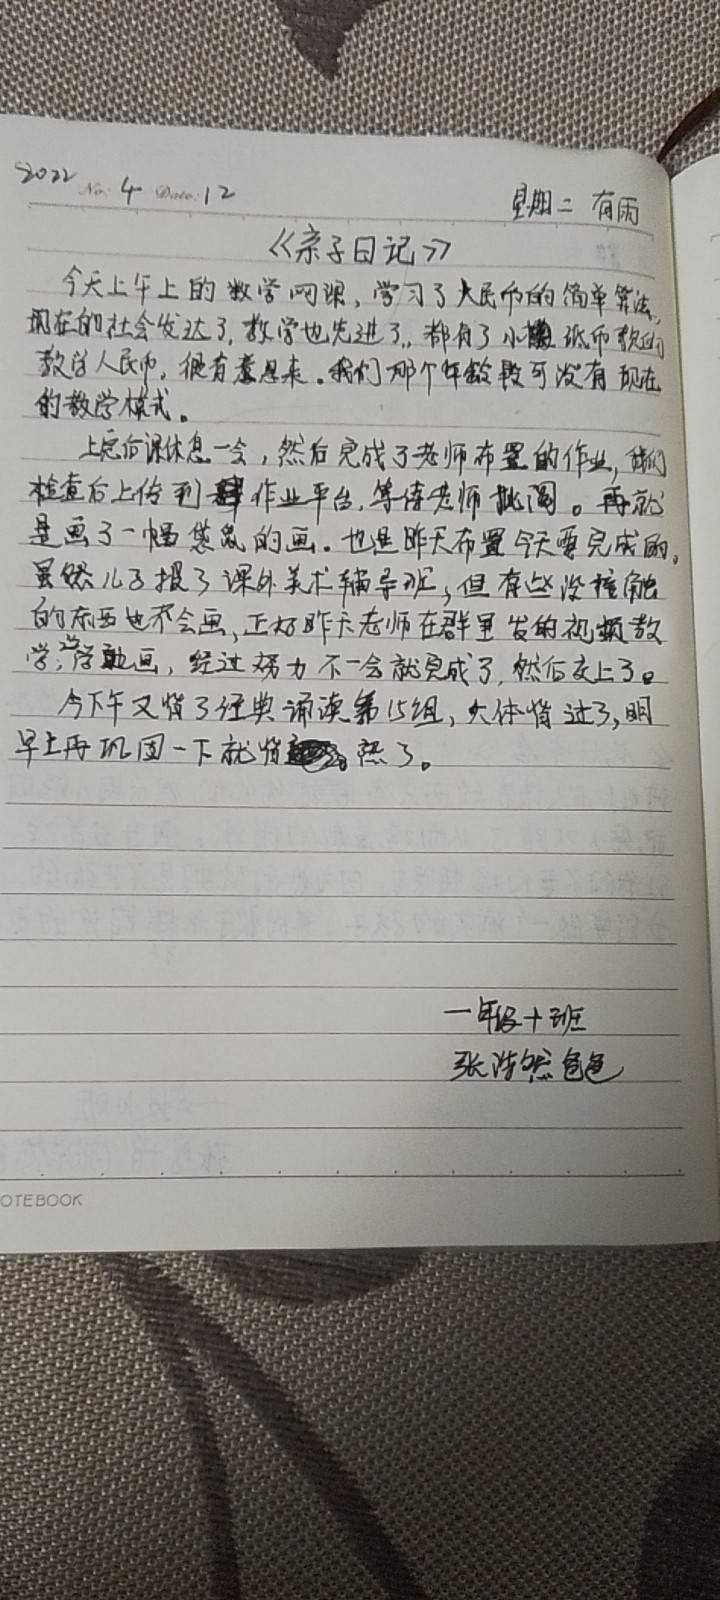 2022 No. 4 Date. 12 星期二 有雨
《亲子日记》
今天上午上的数学网课，学习了人民币的简单算法，
现在的社会发达了，教学也先进了，都有了小 纸币款的
教学人民币，很有意思来。我们那个年龄段可没有现在
的教学模式。
上完后课休息一会，然后完成了老师布置的作业，我们
检查后上传到 作业平台，等待老师批阅。再就
是画了一幅袋鼠的画。也是昨天布置今天要完成的。
虽然儿子报了课外美术辅导班，但有些没接触
的东西也不会画，正好昨天老师在群里发的视频教
学，学 画，经过努力不一会就完成了，然后交上了。
今下午又背了经典诵读第15组，大体背过了，明
早上再巩固一下就背 熟了。
一年级十班
张浩然爸爸
NOTEBOOK